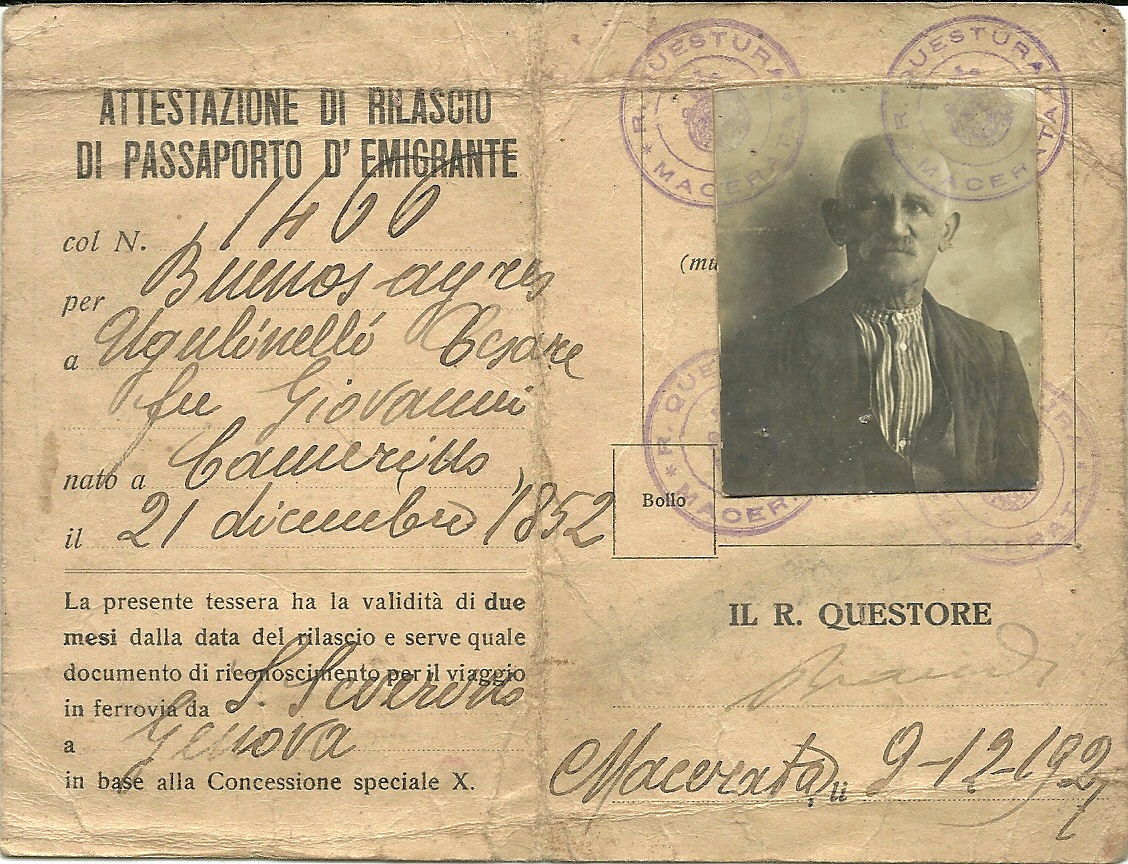 ATTESTAZIONE DI RILASCIO
DI PASSAPORTO D'EMIGRANTE
col N. 1466
per Buenos ayres
a Ugulinelli Cesare
fu Giovanni
nato a Camerino
il 21 dicembre 1852
La presente tessera ha la validità di due
mesi dalla data del rilascio e serve quale
documento di riconoscimento per il viaggio
in ferrovia da S. Severino
a Genova
in base alla Concessione speciale X.
R. QUESTURA * MACERATA *
R. QUESTURA * MACERATA *
(mu
R. QUE * MACER
URA * MACERATA
Bollo
IL R. QUESTORE
Macerata, li 9-12-192